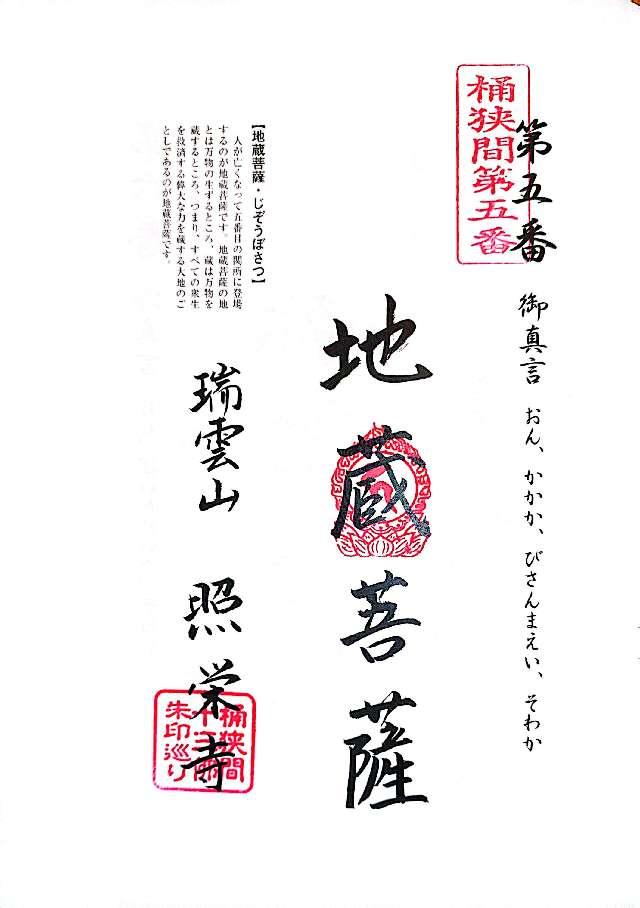 桶狭間第五番
第五番
御真言　おん、かかか、びさんまえい、そわか
地蔵菩薩
【地蔵菩薩・じぞうぼさつ】
人が亡くなって五番目の関所に登場
するのが地蔵菩薩です。地蔵菩薩の地
とは万物の生ずるところ、蔵は万物を
蔵するところ、つまり、すべての衆生
を救済する偉大な力を蔵する大地のご
としてあるのが地蔵菩薩です。
瑞雲山　照栄寺
桶狭間
十三佛
朱印巡り